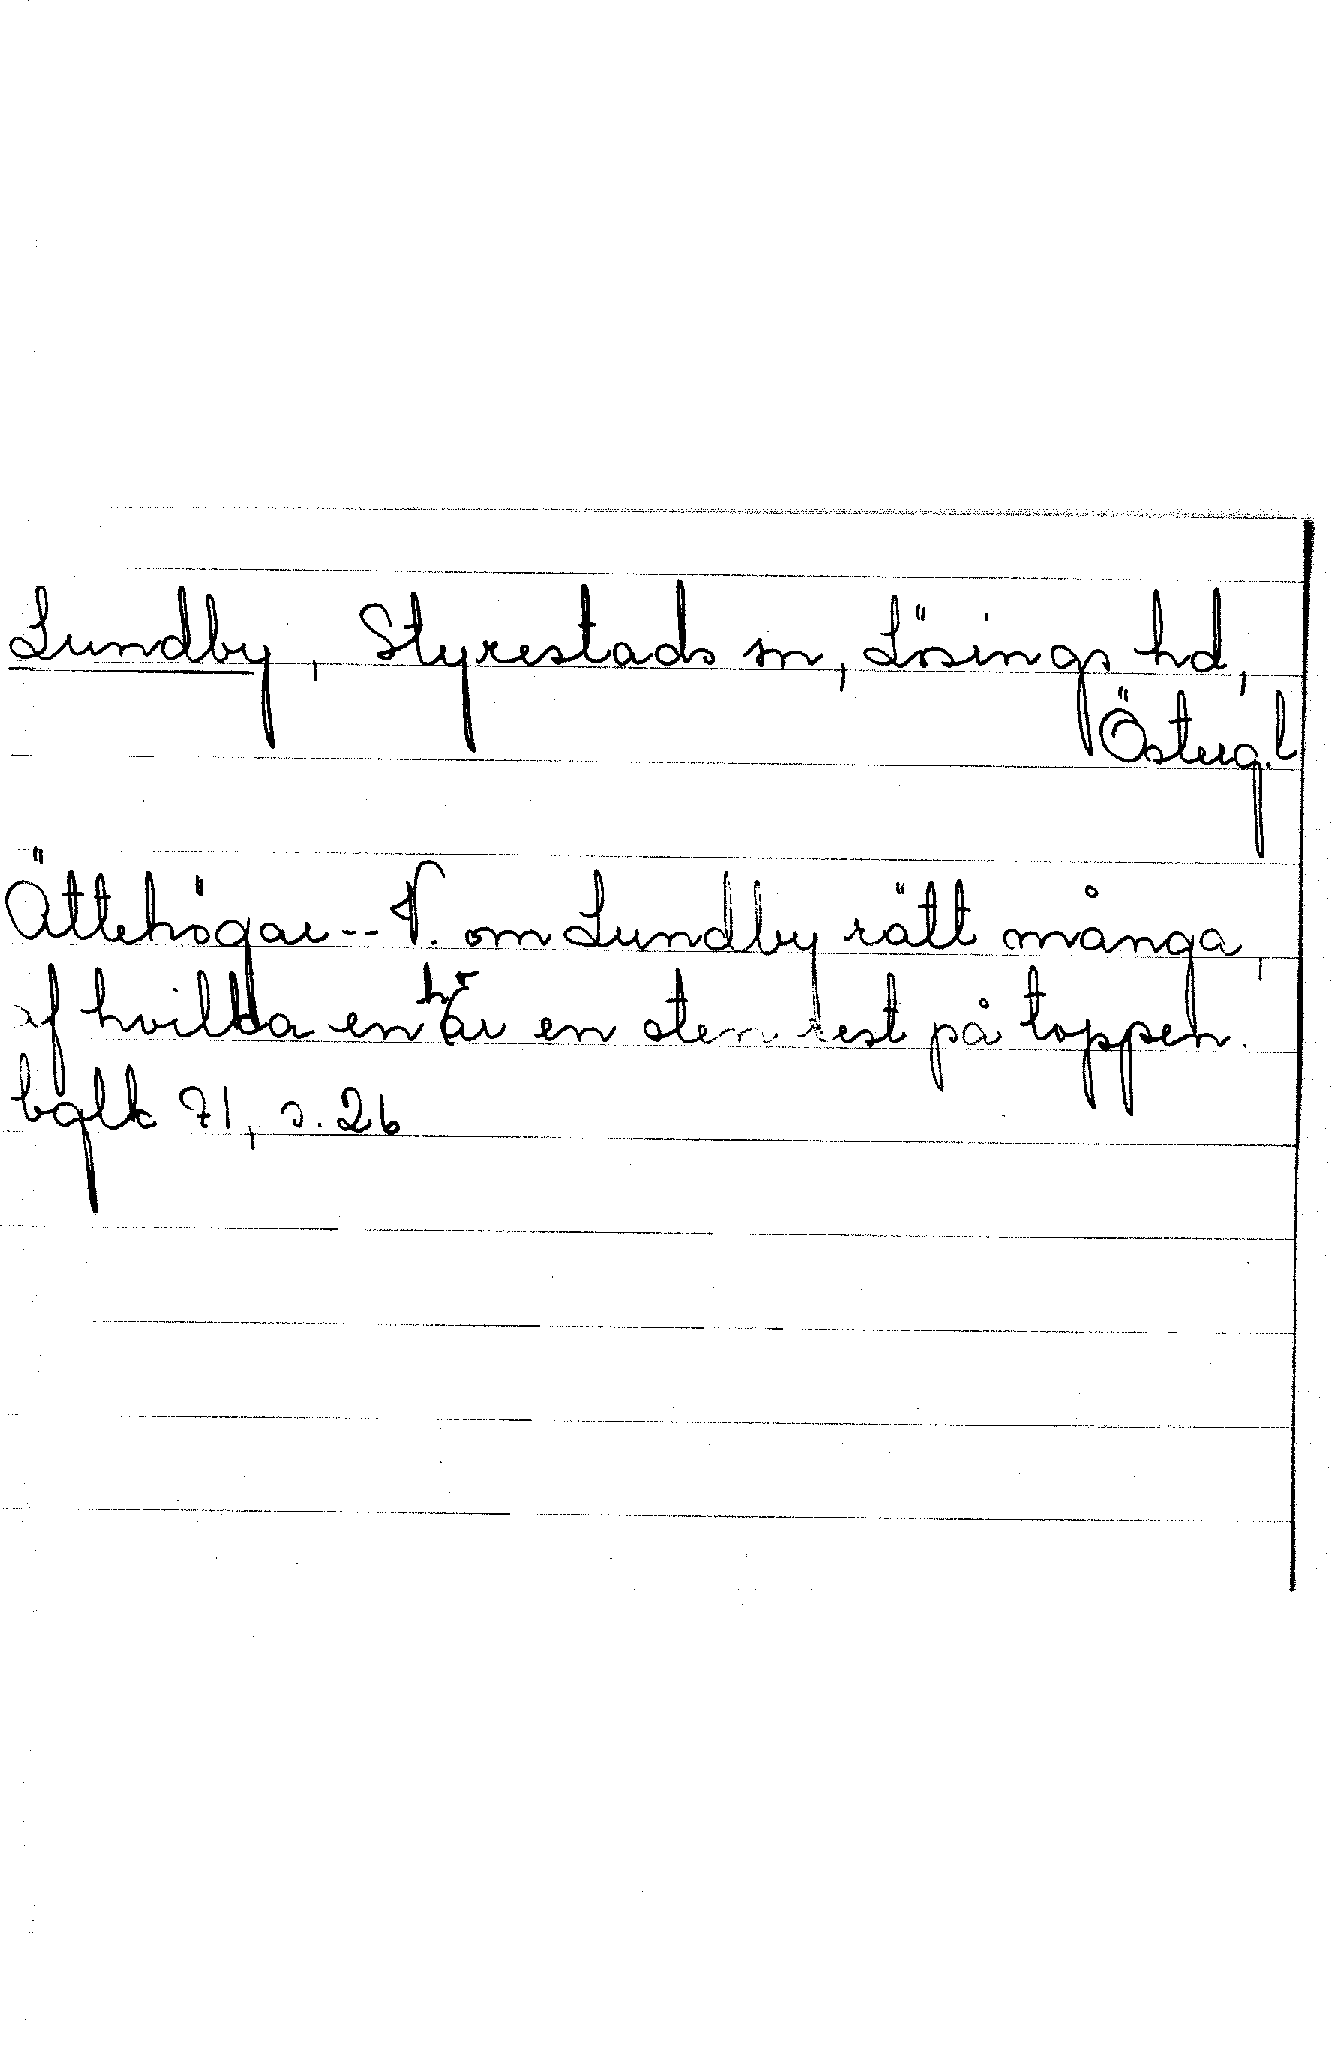 Lundby, Styrestads sn, Lösings hd,
Österg.l
Ättehögar -- N. om Lundby rätt många,
af hvilka en här en sten rest på toppen.
bglk 71, s. 26